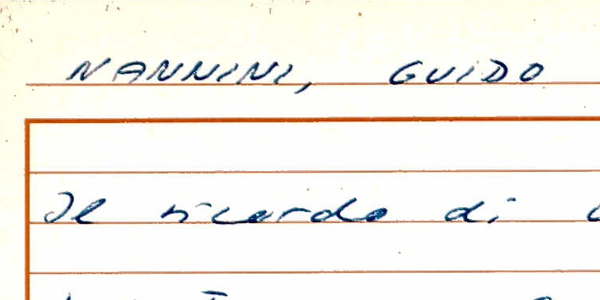 NANNINI, GUIDO
Il ricordo di